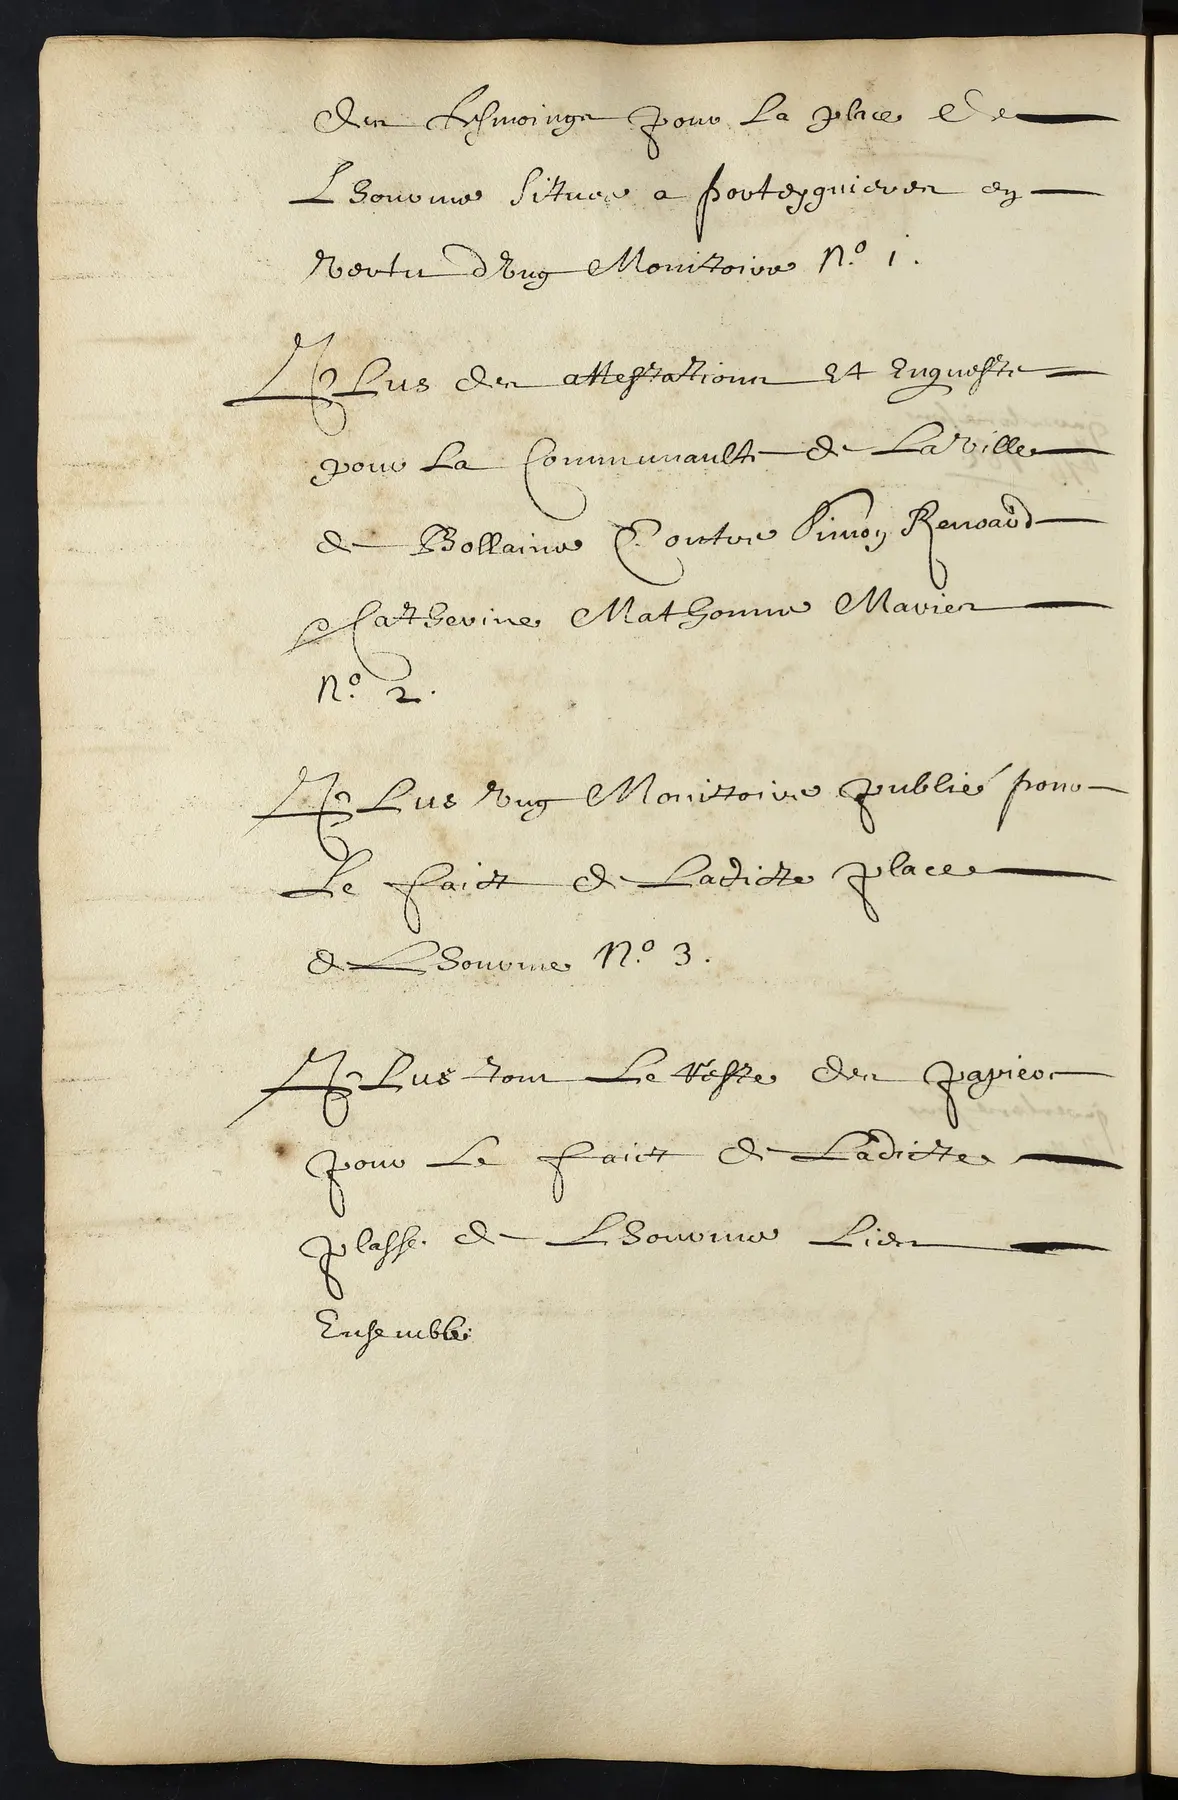 des tesmoings pour La place de
Lhourme situee a porteyguieres en
vertu dvng Monitoire N.o 1.
PLus des attestations Et Enqueste
pour La Communaulté de La ville
de Bollaine Contre Simon Renoard
Catherine Mathonne Maries
N.o 2.
PLus vng Monitoire publié pour
Le faict de Ladicte place
de Lhourme N.o 3.
PLus tout Le reste des papiers
pour Le faict de Ladicte
plasse de Lhourme Liés
Ensemble